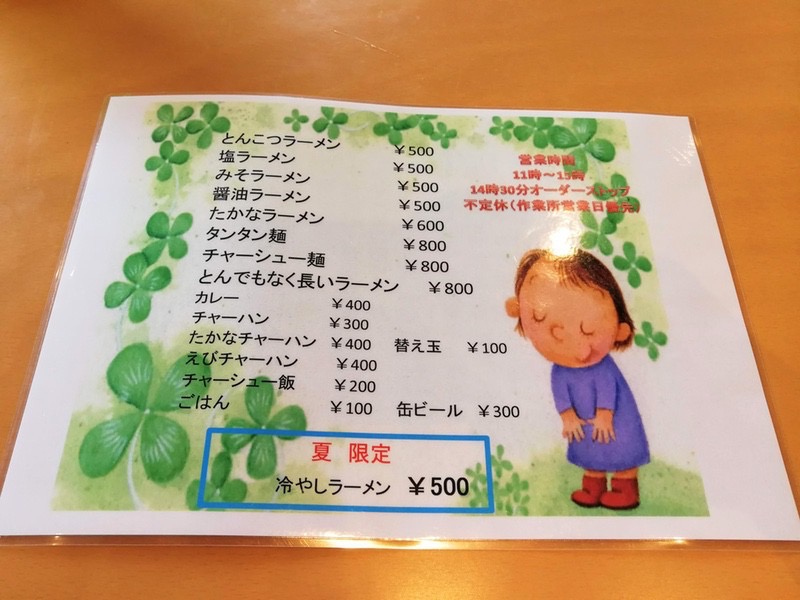 とんこつラーメン ￥500
塩ラーメン ￥500
みそラーメン ￥500
醤油ラーメン ￥500
たかなラーメン ￥600
タンタン麺 ￥800
チャーシュー麺 ￥800
とんでもなく長いラーメン ￥800
カレー ￥400
チャーハン ￥300
たかなチャーハン ￥400 替え玉 ￥100
えびチャーハン ￥400
チャーシュー飯 ￥200
ごはん ￥100 缶ビール ￥300
夏 限定
冷やしラーメン ￥500
営業時間
11時～15時
14時30分オーダーストップ
不定休(作業所営業日優先)